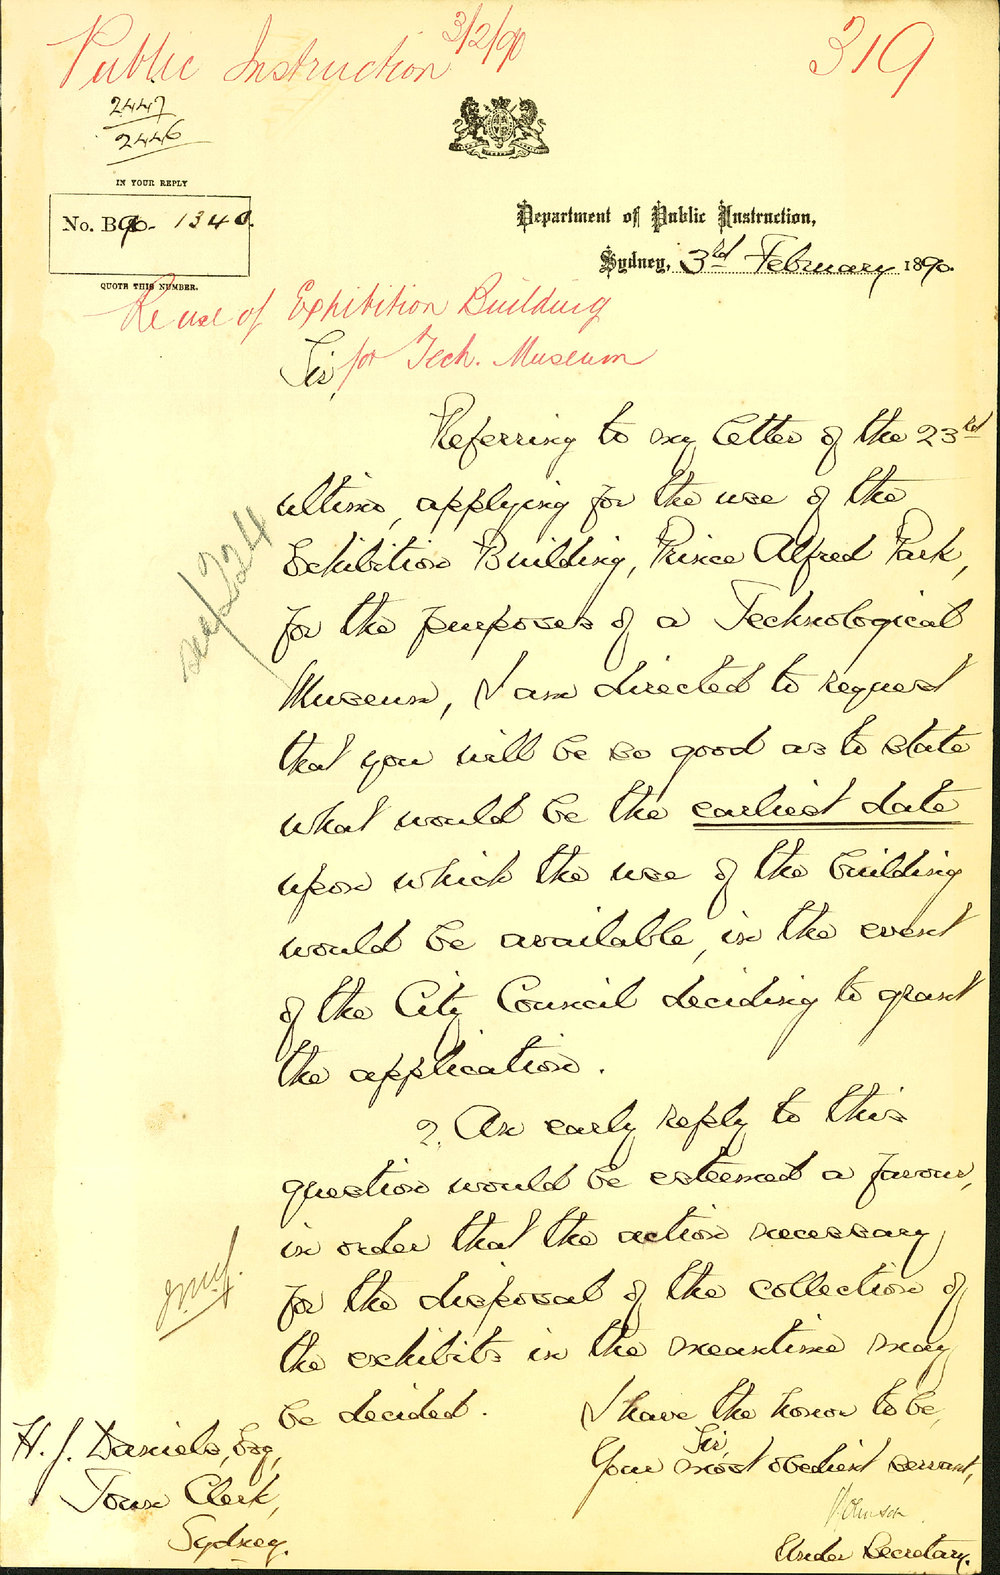 Public Instruction 3/2/90
319
2447
2446
IN YOUR REPLY
No. B90. 1340.
QUOTE THIS NUMBER.
Department of Public Instruction,
Sydney, 3rd February 1890.
Re use of Exhibition Building
for Tech. Museum
Sir,
Referring to my letter of the 23rd
ultimo, applying for the use of the
Exhibition Building, Prince Alfred Park,
for the purposes of a Technological
Museum, I am directed to request
that you will be so good as to state
what would be the earliest date
upon which the use of the building
would be available, in the event
of the City Council deciding to grant
the application.
2. An early reply to this
question would be esteemed a favour,
in order that the action necessary
for the disposal of the collection of
the exhibits in the meantime may
be decided.
I have the honor to be,
Sir,
Your most obedient servant,
Under Secretary.
H. J. Daniels, Esq,
Town Clerk,
Sydney.
224